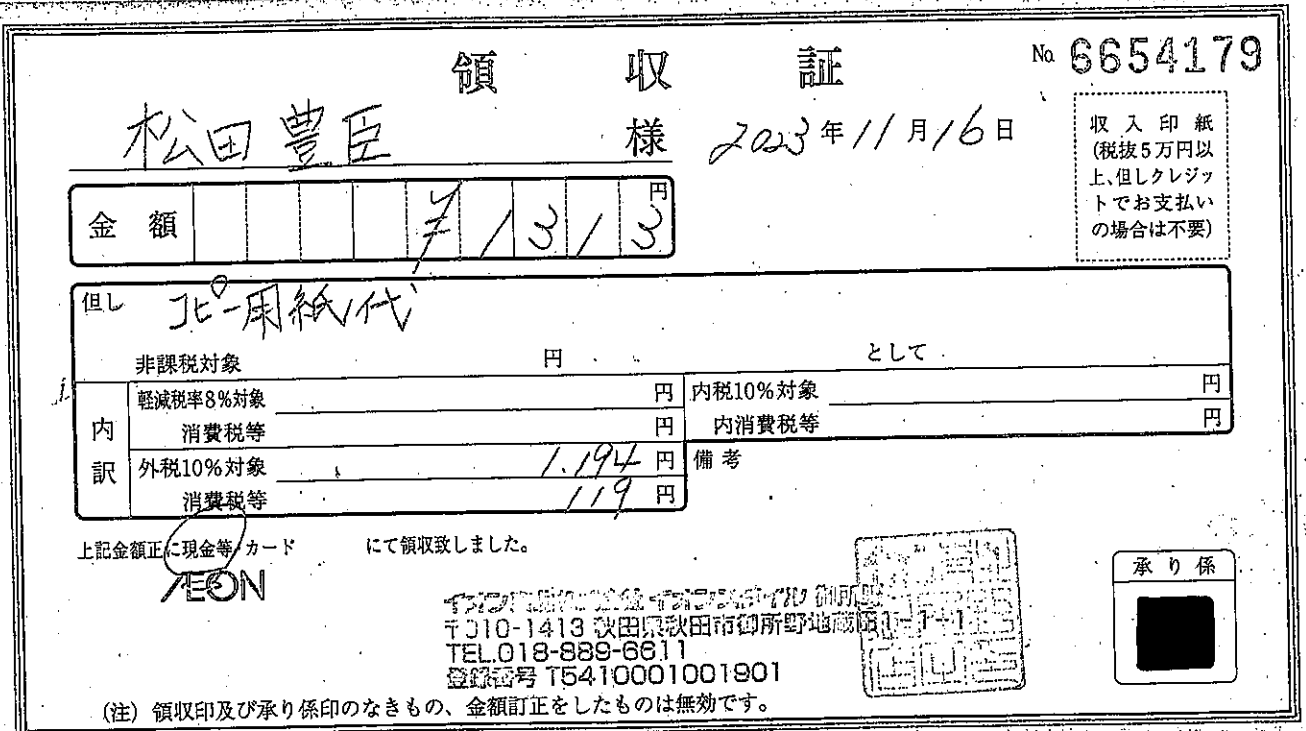 領収証
No. 6654179
松田豊臣 様
2023年11月16日
収入印紙
(税抜5万円以
上、但しクレジッ
トでお支払い
の場合は不要)
金額 ¥1313円
但し コピー用紙代
非課税対象 円 として
内訳
軽減税率8%対象 円
消費税等 円
外税10%対象 1.194円
消費税等 119円
内税10%対象 円
内消費税等 円
備考
上記金額正に現金等・カード にて領収致しました。
ÆON
承り係
〒010-1413 秋田県秋田市御所野地蔵田1-1-1
TEL.018-889-6611
登録番号 T5410001001901
(注) 領収印及び承り係印のなきもの、金額訂正をしたものは無効です。